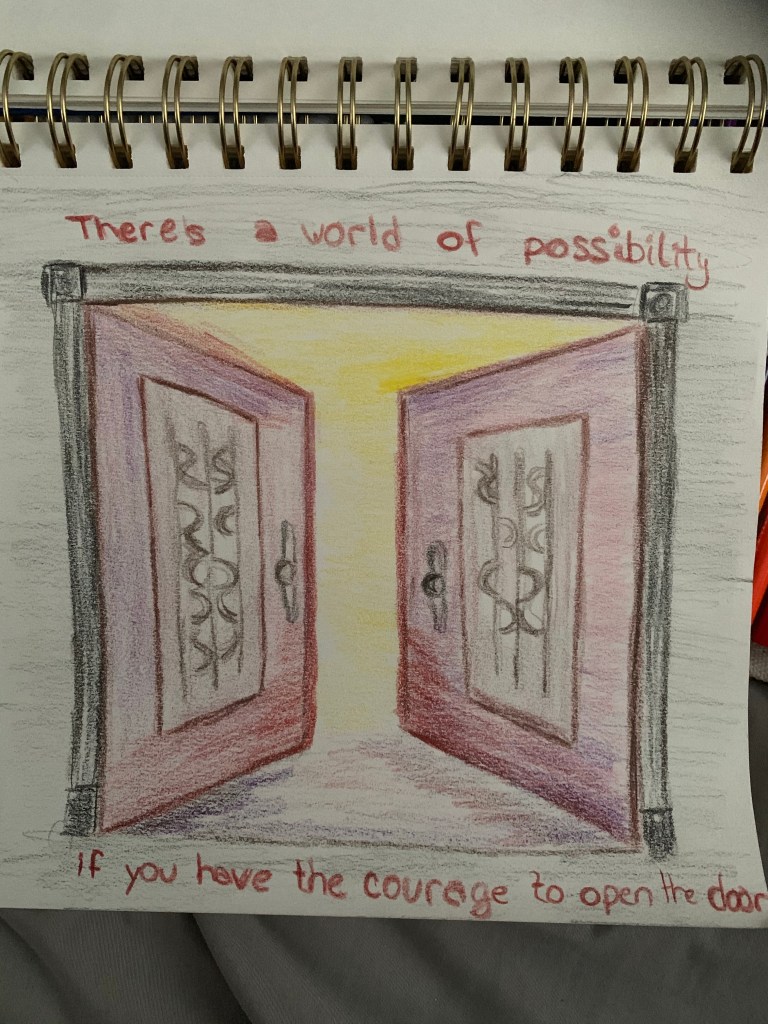 There's a world of possibility
If you have the courage to open the door